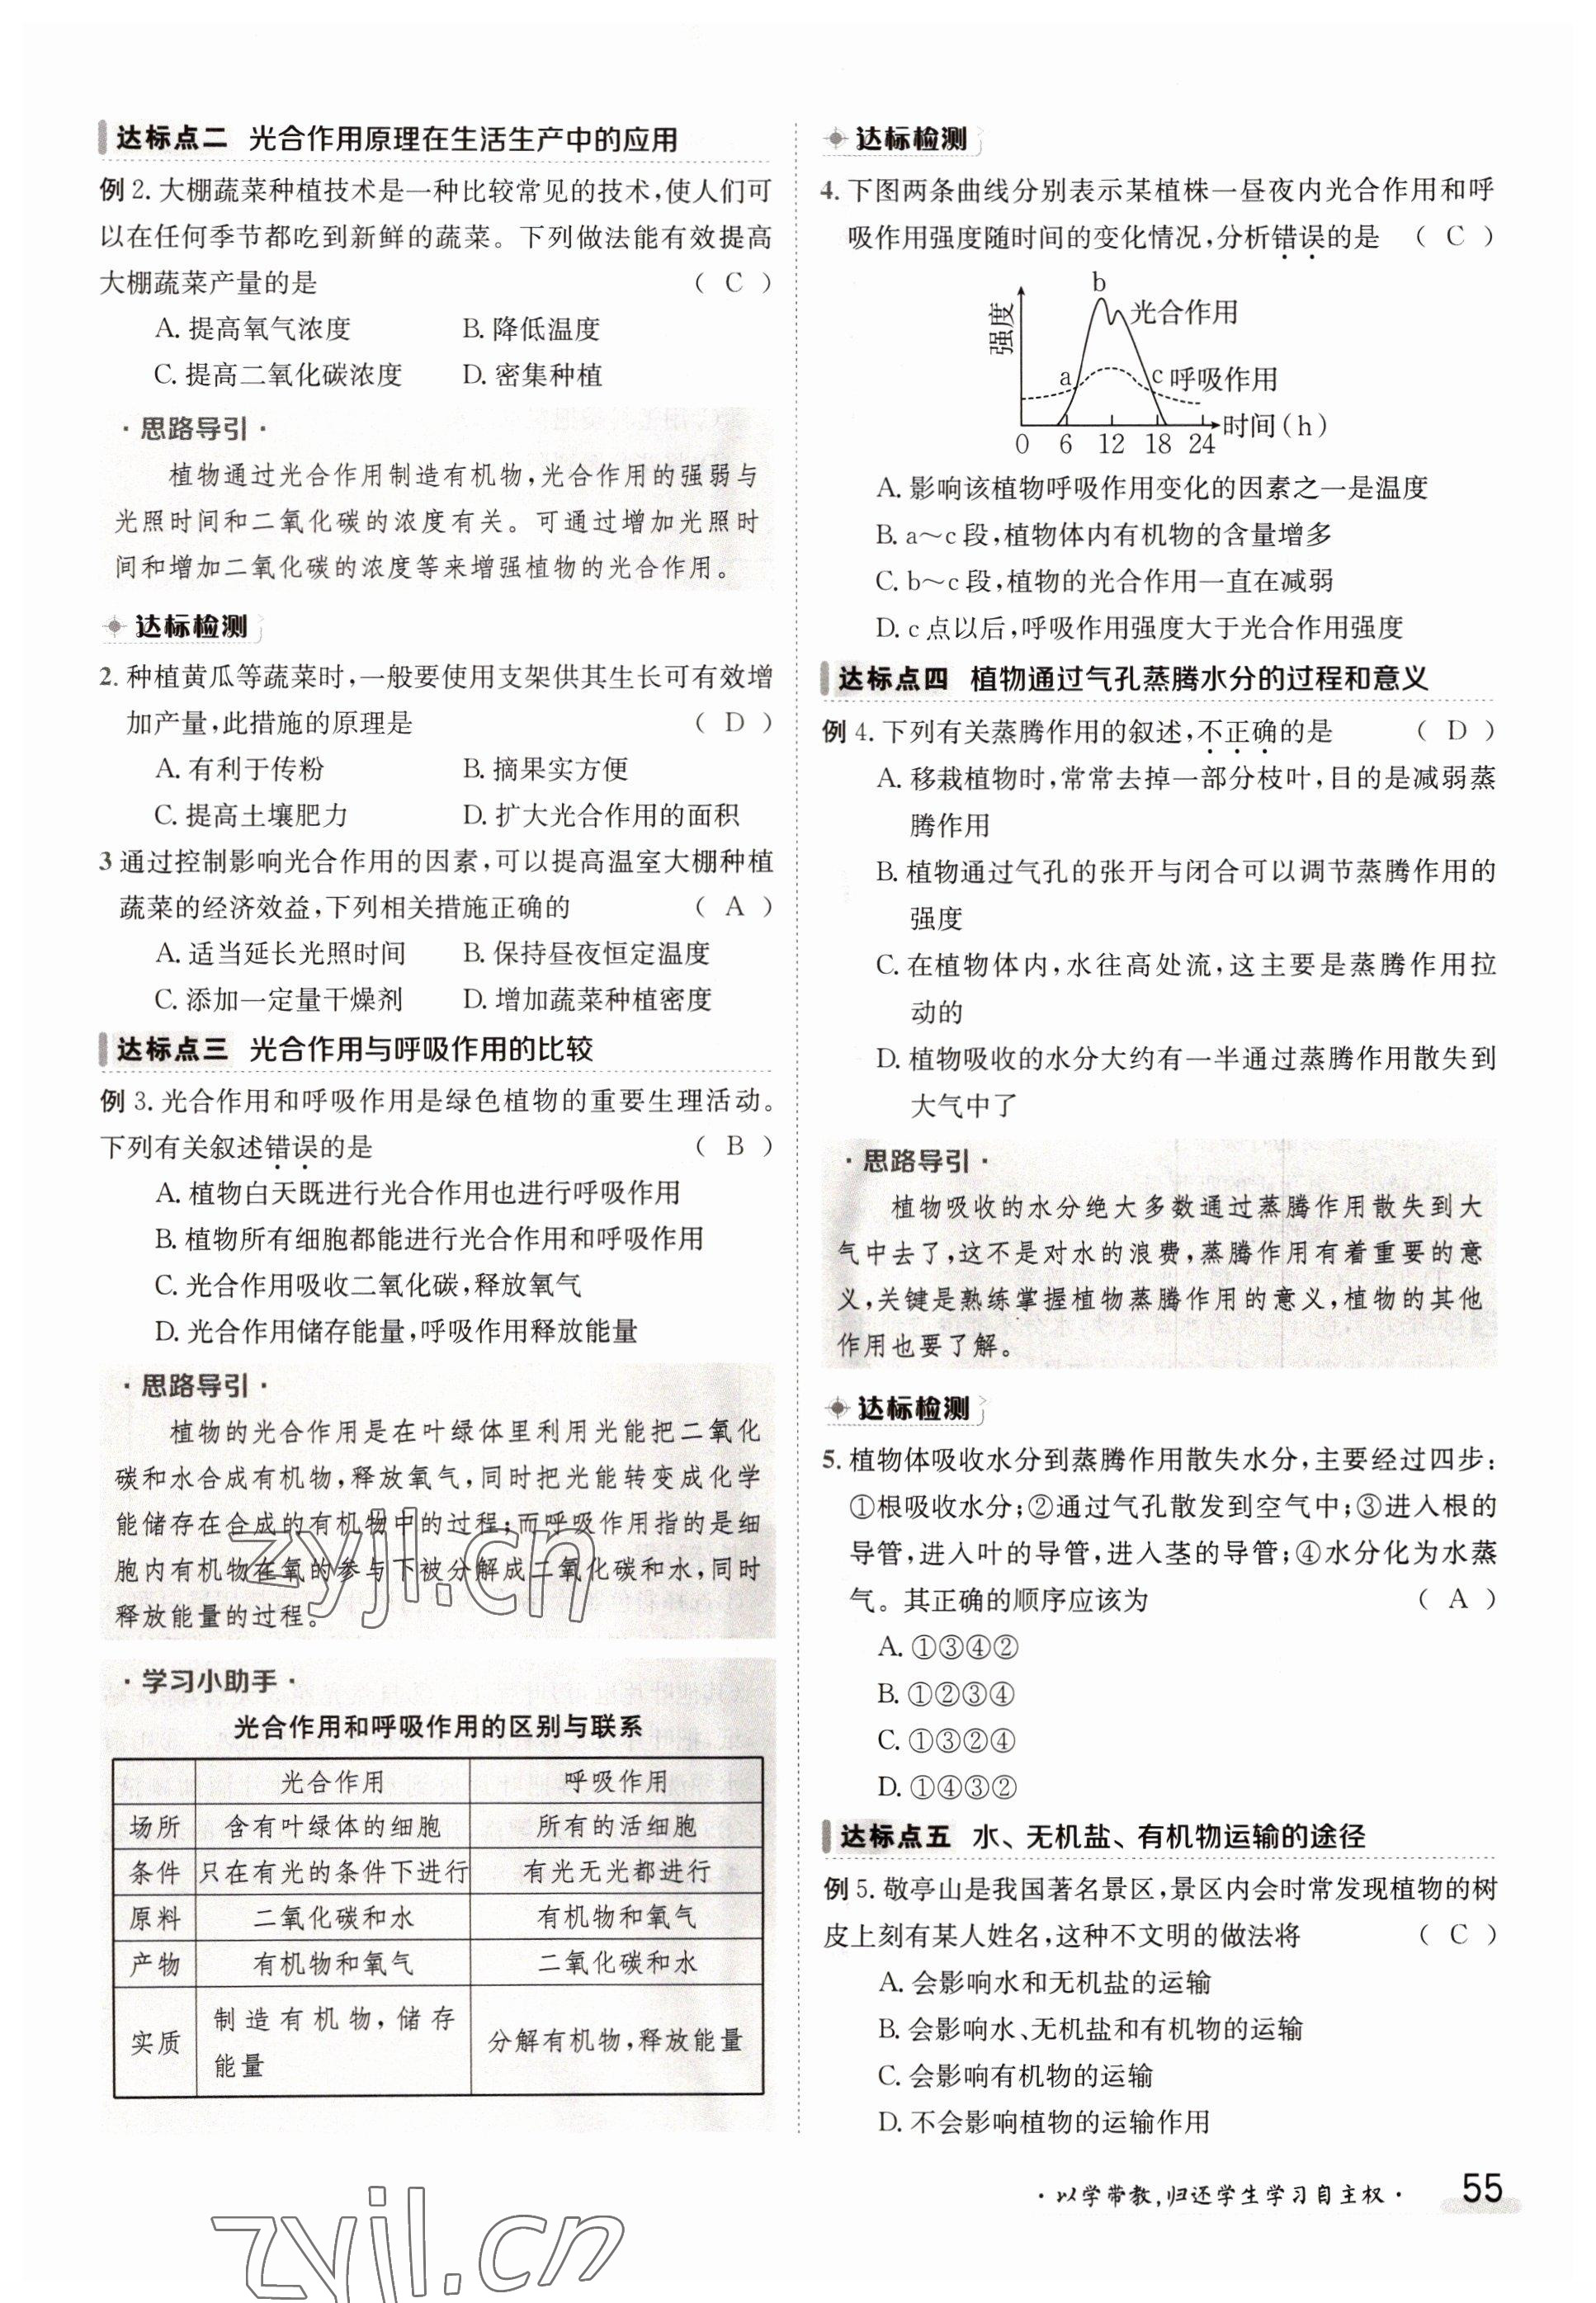 达标点二 光合作用原理在生活生产中的应用
例 2. 大棚蔬菜种植技术是一种比较常见的技术,使人们可
以在任何季节都吃到新鲜的蔬菜。下列做法能有效提高
大棚蔬菜产量的是 ( C )
A. 提高氧气浓度 B. 降低温度
C. 提高二氧化碳浓度 D. 密集种植
· 思路导引 ·
植物通过光合作用制造有机物,光合作用的强弱与
光照时间和二氧化碳的浓度有关。可通过增加光照时
间和增加二氧化碳的浓度等来增强植物的光合作用。
达标检测
2. 种植黄瓜等蔬菜时,一般要使用支架供其生长可有效增
加产量,此措施的原理是 ( D )
A. 有利于传粉 B. 摘果实方便
C. 提高土壤肥力 D. 扩大光合作用的面积
3 通过控制影响光合作用的因素,可以提高温室大棚种植
蔬菜的经济效益,下列相关措施正确的 ( A )
A. 适当延长光照时间 B. 保持昼夜恒定温度
C. 添加一定量干燥剂 D. 增加蔬菜种植密度
达标点三 光合作用与呼吸作用的比较
例 3. 光合作用和呼吸作用是绿色植物的重要生理活动。
下列有关叙述错误的是 ( B )
A. 植物白天既进行光合作用也进行呼吸作用
B. 植物所有细胞都能进行光合作用和呼吸作用
C. 光合作用吸收二氧化碳,释放氧气
D. 光合作用储存能量,呼吸作用释放能量
· 思路导引 ·
植物的光合作用是在叶绿体里利用光能把二氧化
碳和水合成有机物,释放氧气,同时把光能转变成化学
能储存在合成的有机物中的过程;而呼吸作用指的是细
胞内有机物在氧的参与下被分解成二氧化碳和水,同时
释放能量的过程。
zyjl.cn
· 学习小助手 ·
光合作用和呼吸作用的区别与联系
光合作用 呼吸作用
场所 含有叶绿体的细胞 所有的活细胞
条件 只在有光的条件下进行 有光无光都进行
原料 二氧化碳和水 有机物和氧气
产物 有机物和氧气 二氧化碳和水
实质 制造有机物,储存 分解有机物,释放能量
能量
达标检测
4. 下图两条曲线分别表示某植株一昼夜内光合作用和呼
吸作用强度随时间的变化情况,分析错误的是 ( C )
b
强度 光合作用
a c 呼吸作用
时间(h)
0 6 12 18 24
A. 影响该植物呼吸作用变化的因素之一是温度
B. a～c 段,植物体内有机物的含量增多
C. b～c 段,植物的光合作用一直在减弱
D. c 点以后,呼吸作用强度大于光合作用强度
达标点四 植物通过气孔蒸腾水分的过程和意义
例 4. 下列有关蒸腾作用的叙述,不正确的是 ( D )
A. 移栽植物时,常常去掉一部分枝叶,目的是减弱蒸
腾作用
B. 植物通过气孔的张开与闭合可以调节蒸腾作用的
强度
C. 在植物体内,水往高处流,这主要是蒸腾作用拉
动的
D. 植物吸收的水分大约有一半通过蒸腾作用散失到
大气中了
· 思路导引 ·
植物吸收的水分绝大多数通过蒸腾作用散失到大
气中去了,这不是对水的浪费,蒸腾作用有着重要的意
义,关键是熟练掌握植物蒸腾作用的意义,植物的其他
作用也要了解。
达标检测
5. 植物体吸收水分到蒸腾作用散失水分,主要经过四步:
①根吸收水分;②通过气孔散发到空气中;③进入根的
导管,进入叶的导管,进入茎的导管;④水分化为水蒸
气。其正确的顺序应该为 ( A )
A. ①③④②
B. ①②③④
C. ①③②④
D. ①④③②
达标点五 水、无机盐、有机物运输的途径
例 5. 敬亭山是我国著名景区,景区内会时常发现植物的树
皮上刻有某人姓名,这种不文明的做法将 ( C )
A. 会影响水和无机盐的运输
B. 会影响水、无机盐和有机物的运输
C. 会影响有机物的运输
D. 不会影响植物的运输作用
· 以学带教,归还学生学习自主权 · 55
zyjl.cn